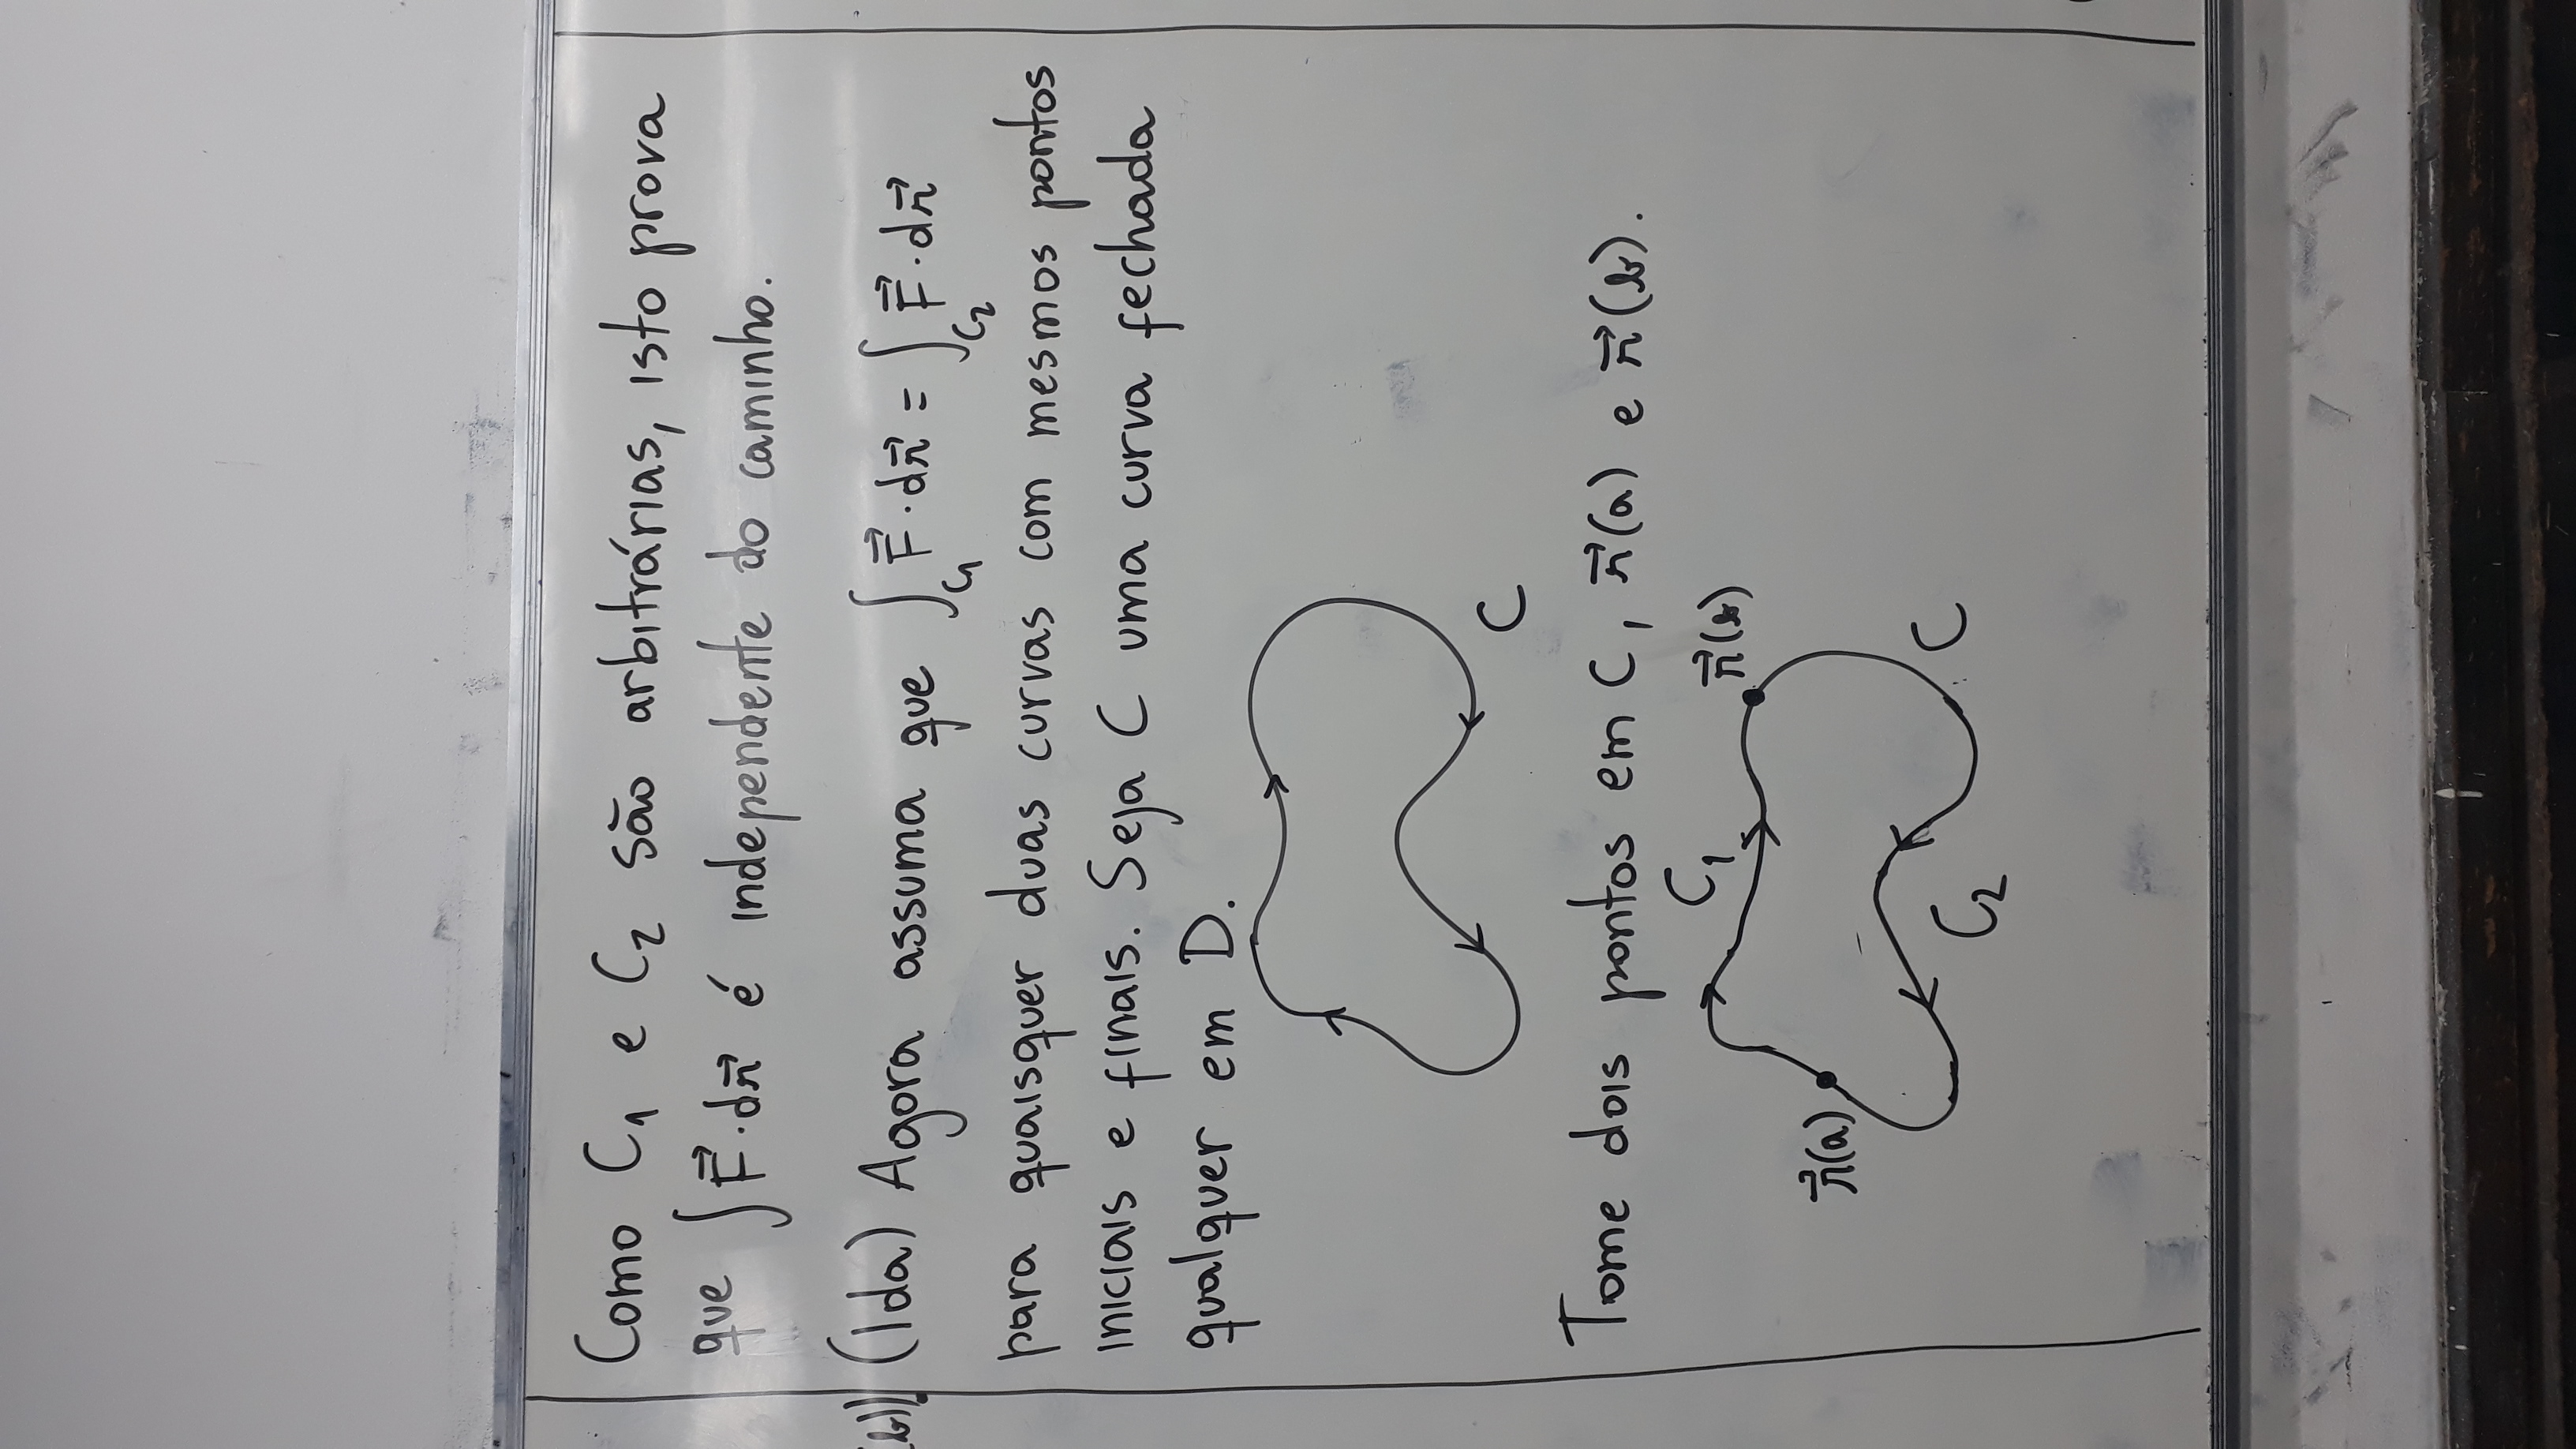 Como C₁ e C₂ são arbitrárias, isto prova
que ∫ F⃗ · dr⃗ é independente do caminho.
(Ida) Agora assuma que ∫_C₁ F⃗ · dr⃗ = ∫_C₂ F⃗ · dr⃗
para quaisquer duas curvas com mesmos pontos
iniciais e finais. Seja C uma curva fechada
qualquer em D.
C
Tome dois pontos em C, r⃗(a) e r⃗(b).
C₁
r⃗(b)
r⃗(a)
C
C₂